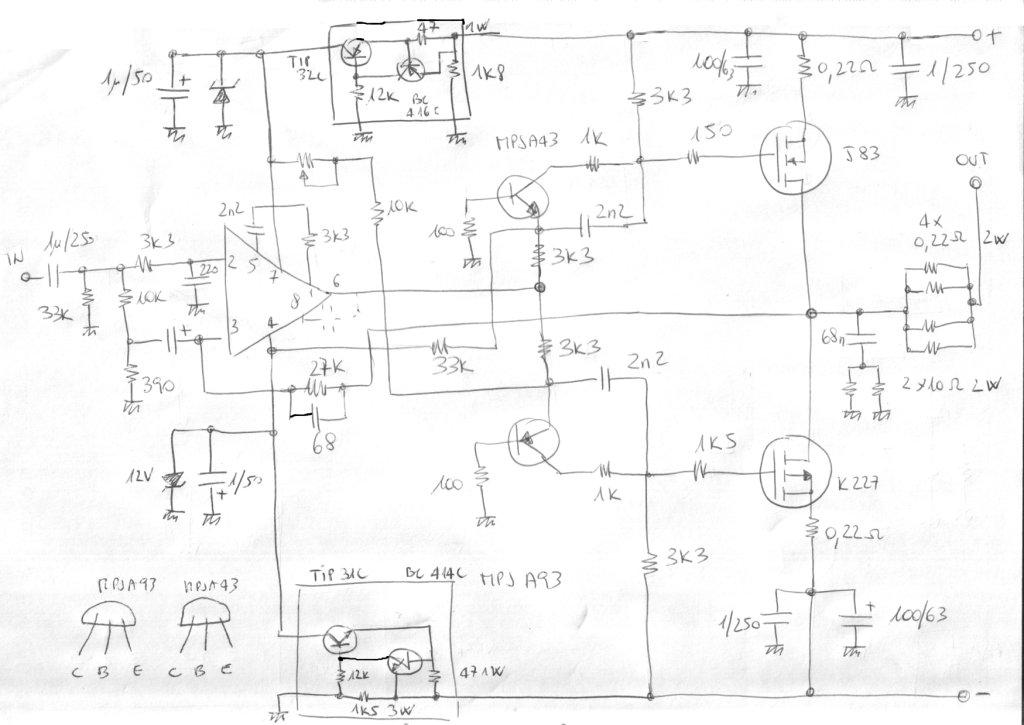 47
1W
+
TIP
32C
1K8
1µ/50
12K
BC
416C
100/63
0,22Ω
1/250
3K3
MPSA43
1K
150
J83
OUT
2n2
10K
100
2n2
4x
0,22Ω
2W
1µ/250
3K3
3K3
3K3
IN
2
5
7
220
6
33K
10K
8
3
4
68n
33K
3K3
390
27K
2n2
2x10Ω 2W
68
12V
1/50
100
1K
1K5
K227
0,22Ω
3K3
TIP 31C
BC 414C
MPS A93
MPSA93
MPSA43
1/250
+
100/63
C B E
C B E
12K
47 1W
1K5 3W
-